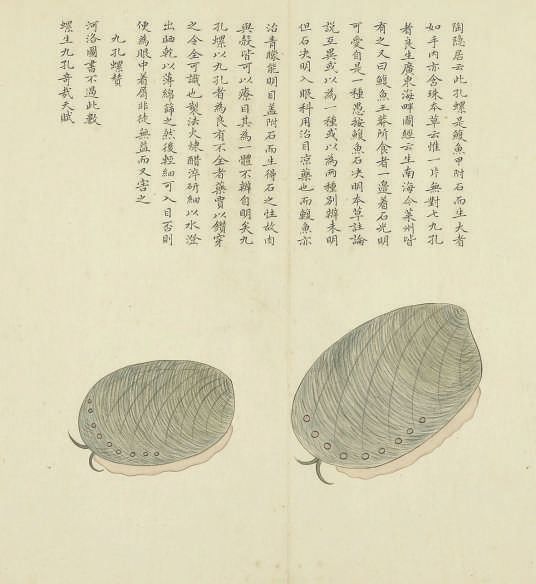 陶隱居云此孔螺是鰒魚甲附石而生大者
如手内亦含珠本草云惟一片無對七九孔
者良生廣東海畔圖經云生南海今萊州皆
有之又曰鰒魚王莽所食者一邊着石光明
可愛自是一種愚按鰒魚石决明本草註論
說互異或以為一種或以為兩種別辨未明
但石决明入眼科用治目凉藥也而鰒魚亦
治青矇能明目盖附石而生得石之性故肉
與殻皆可以療目其為一體不辨自明矣九
孔螺以九孔者為良有不全者藥賈以鑽穿
之令全可識也製法火煉醋淬研細以水澄
出晒乾以薄綿篩之然後輕細可入目否則
便為眼中着屑非徒無益而又害之
九孔螺賛
河洛圖書不過此數
螺生九孔奇哉天賦